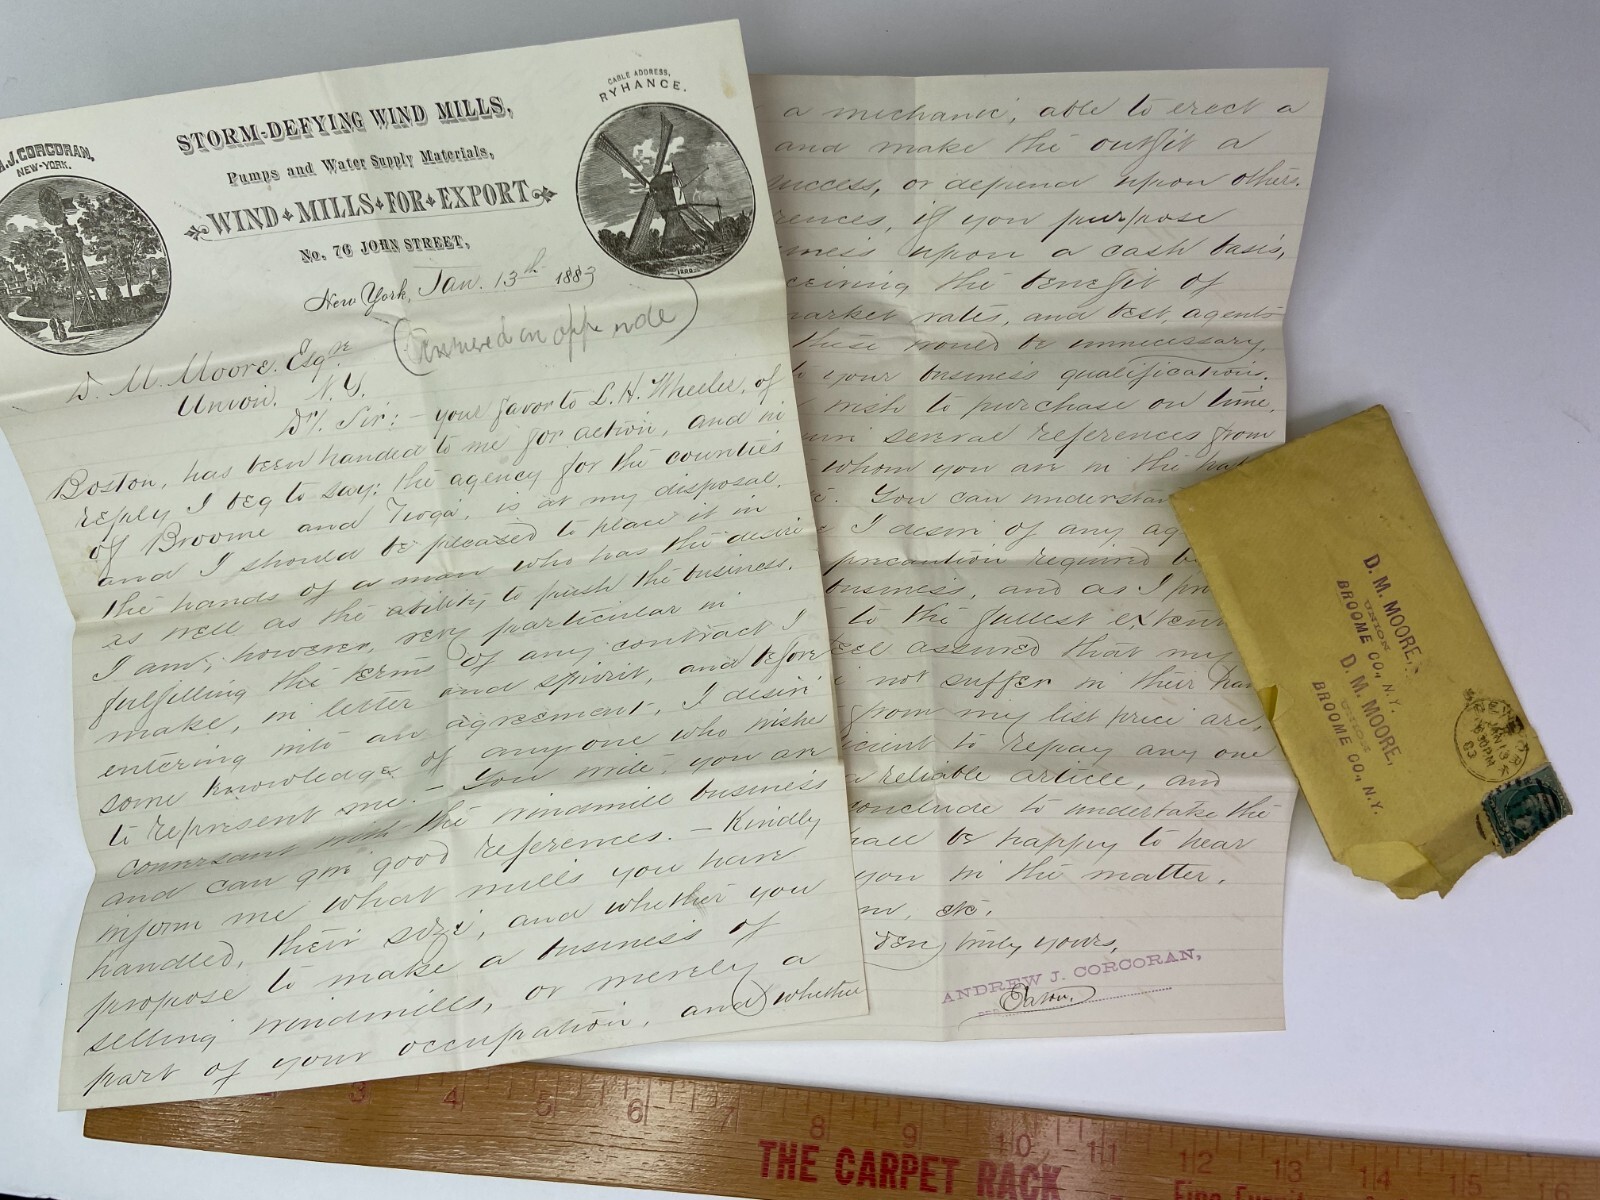 A.J. CORCORAN,
NEW-YORK.
STORM-DEFYING WIND MILLS,
Pumps and Water Supply Materials,
WIND MILLS FOR EXPORT
No. 76 JOHN STREET,
CABLE ADDRESS,
RYHANCE.
New York, Jan. 13th 1883
(Answered on opp side)
D. M. Moore, Esqre
Union, N.Y.
Dr. Sir:- your favor to L. H. Wheeler, of
Boston, has been handed to me for action, and in
reply I beg to say: the agency for the counties
of Broome and Tioga, is at my disposal,
and I should be pleased to place it in
the hands of a man who has the desire
as well as the ability to push the business.
I am, however, very particular in
fulfilling the terms of any contract I
make, in letter and spirit, and before
entering into an agreement, I desire
some knowledge of anyone who wishes
to represent me.- You write, you are
conversant with the windmill business
and can give good references. - Kindly
inform me what mills you have
handled, their size, and whether you
propose to make a business of
selling windmills, or merely a
part of your occupation, and whether
a mechanic, able to erect a
and make the outfit a
success, or depend upon others.
rences, if you purpose
iness upon a cash basis,
ceiving the benefit of
market rates, and best, agents
these would be unnecessary,
your business qualifications.
wish to purchase on time,
several references from
whom you are in the ha
You can understan
I desire of any ag
precaution required b
business, and as I pro
to the fullest extent
eel assured that my
not suffer in their han
from my list price are,
icient to repay any one
a reliable article, and
conclude to undertake the
hall be happy to hear
you in the matter.
etc.
truly yours,
ANDREW J. CORCORAN,
Eaton.
D. M. MOORE,
UNION
BROOME CO., N.Y.
D. M. MOORE,
UNION
BROOME CO., N.Y.
NEW
JAN 13
830PM
83
3 4 5 6 7 8 9 10 11 12 13 14 15 16
THE CARPET RACK
Fine Furnit